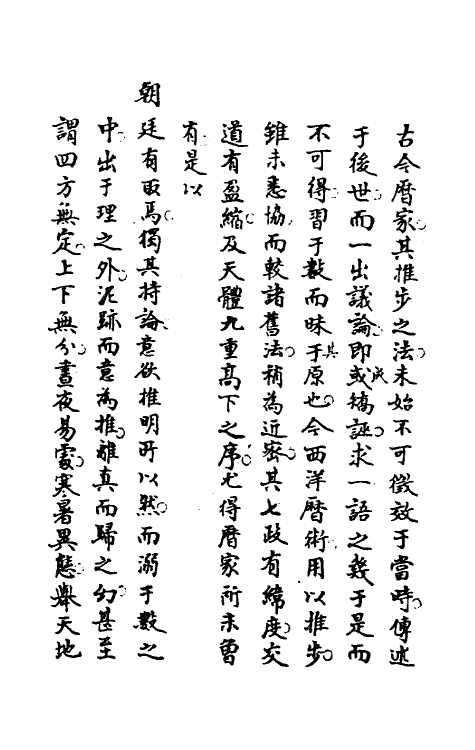 古今曆家其推步之法未始不可徵效于當時傳述
于後世而一出議論即或成矯誣求一語之幾于是而
不可得習于數而昧于其原也今西洋曆術用以推步
雖未悉協而較諸舊法稍為近密其七政有緯度交
道有盈縮及天體九重高下之序尤得曆家所未曾
有是以
朝廷有取焉獨其持論意欲推明所以然而溺于數之
中出于理之外泥跡而意為推離真而歸之幻甚至
謂四方無定上下無分晝夜易處寒暑異態舉天地